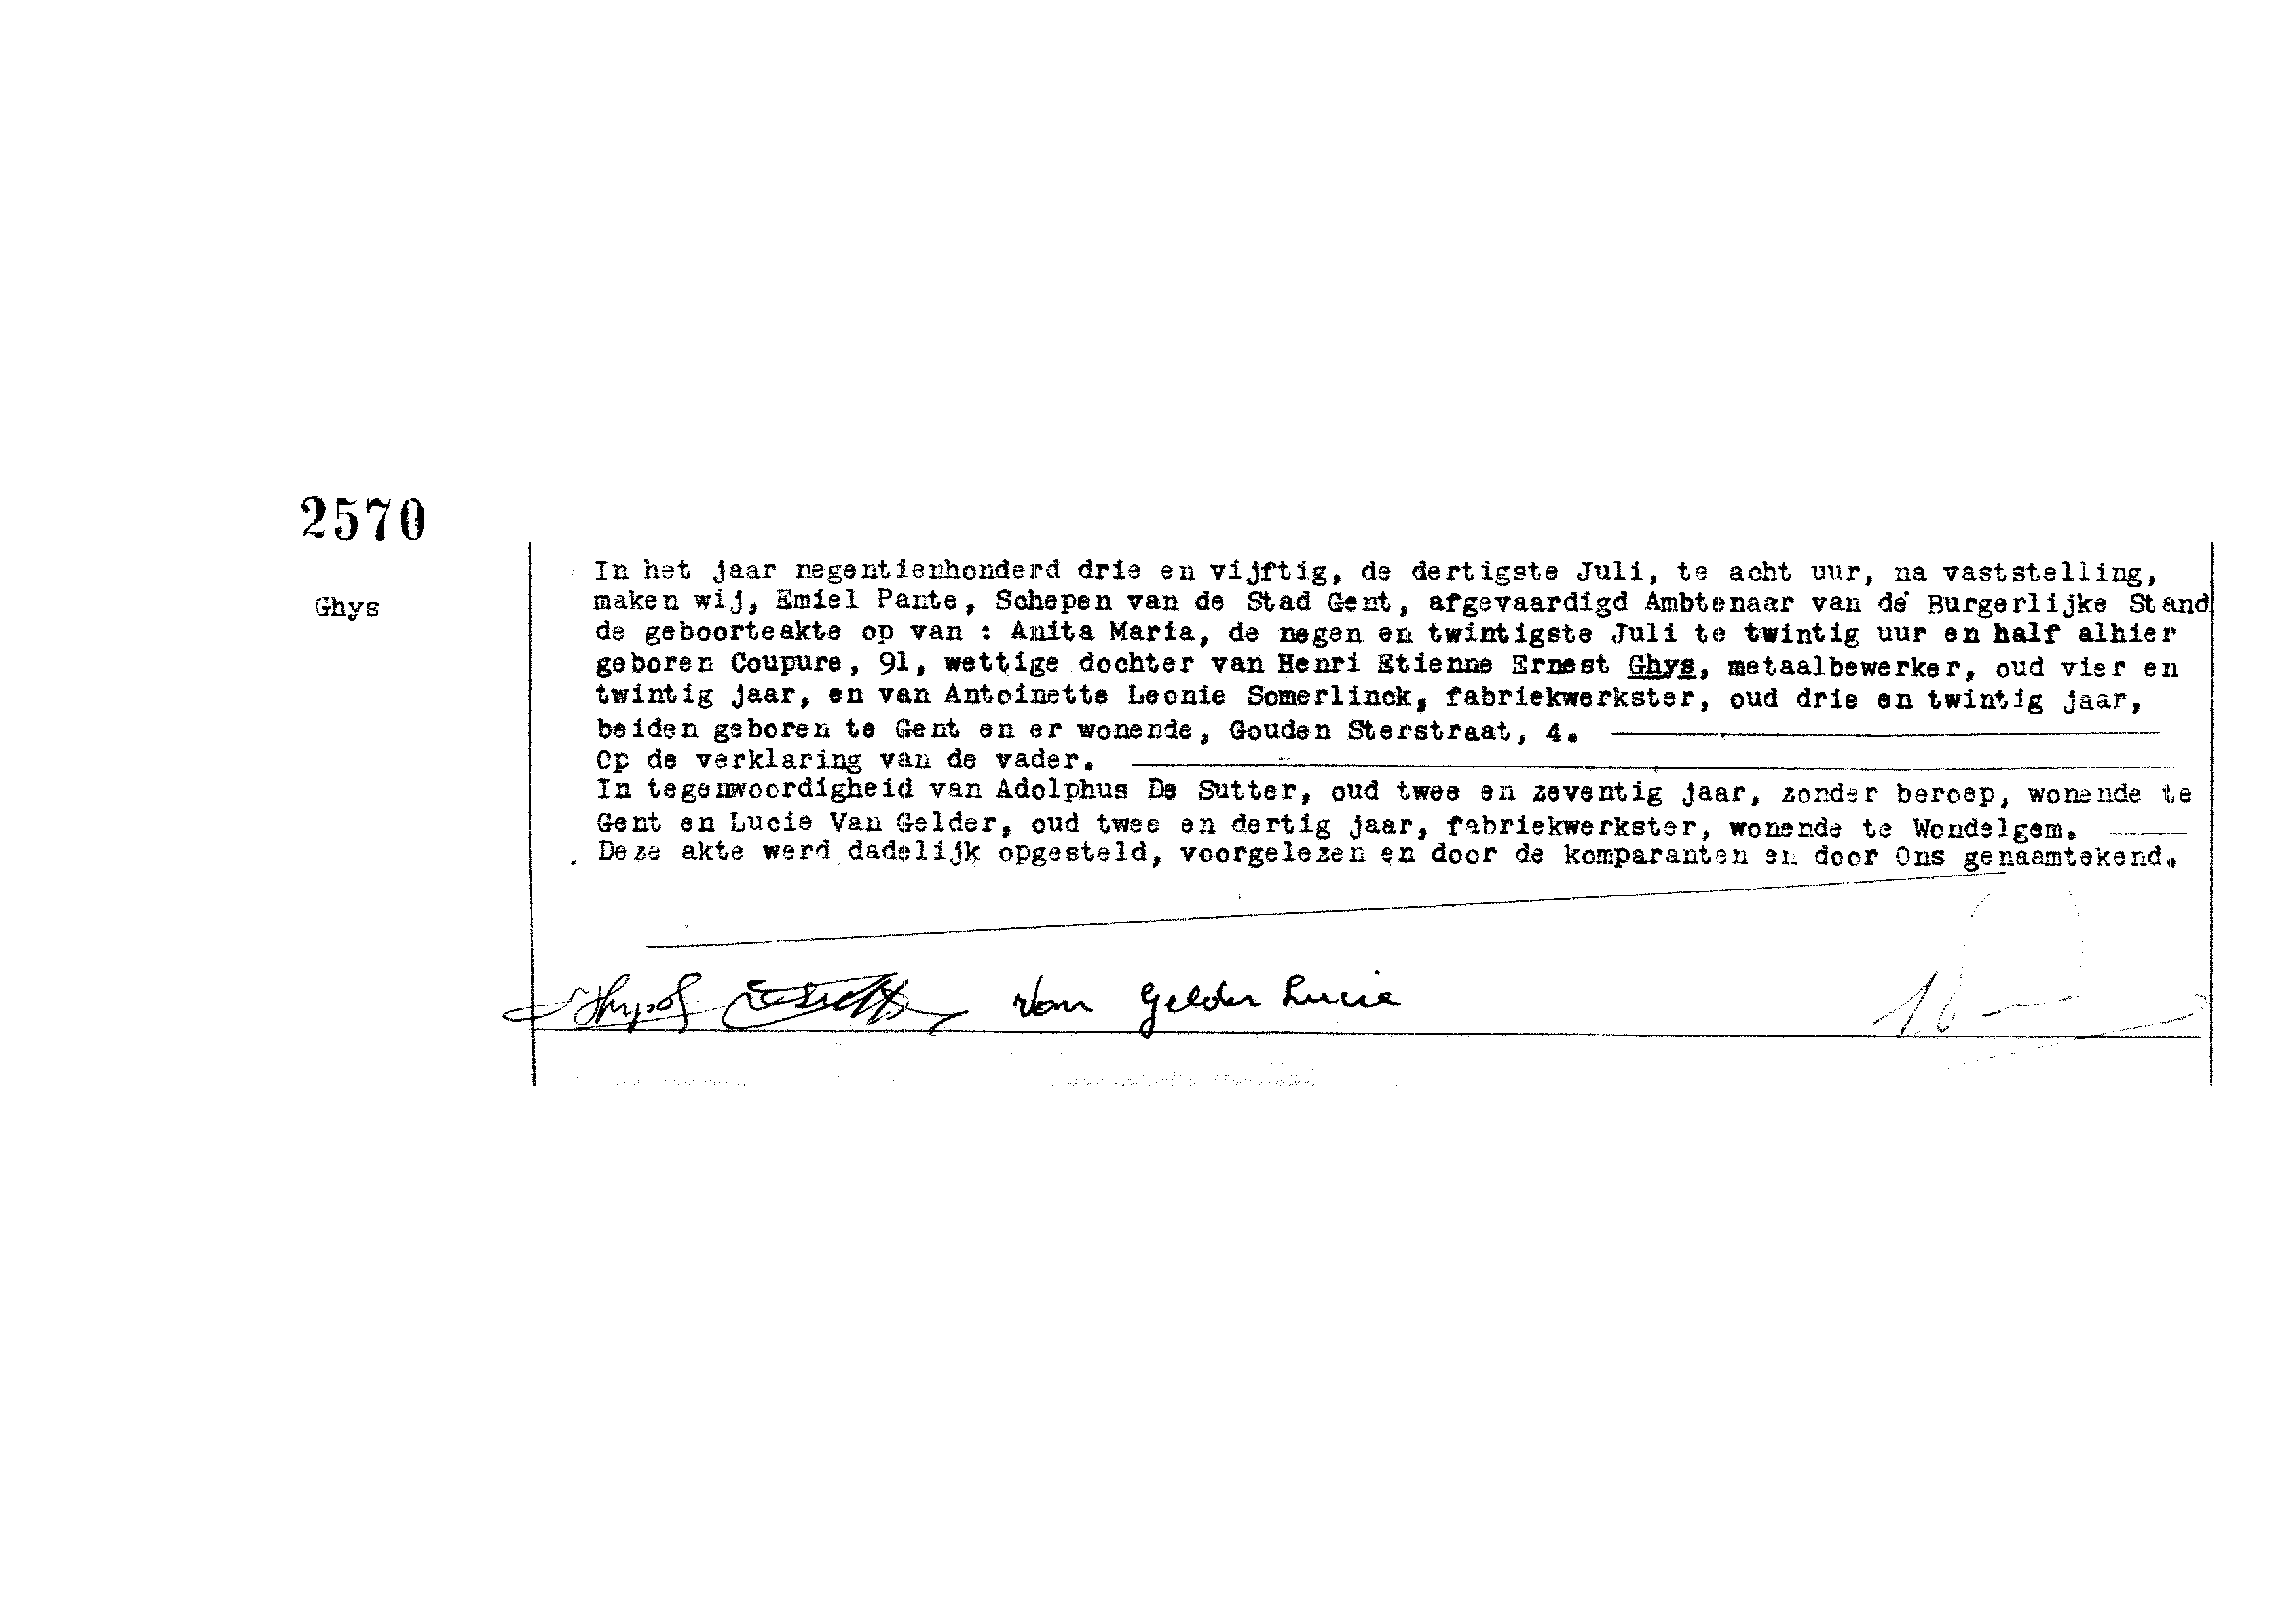 2570
Ghys
In het jaar negentienhonderd drie en vijftig, de dertigste Juli, te acht uur, na vaststelling,
maken wij, Emiel Pante, Schepen van de Stad Gent, afgevaardigd Ambtenaar van de Burgerlijke Stand
de geboorteakte op van : Anita Maria, de negen en twintigste Juli te twintig uur en half alhier
geboren Coupure, 91, wettige dochter van Henri Etienne Ernest Ghys, metaalbewerker, oud vier en
twintig jaar, en van Antoinette Leonie Somerlinck, fabriekwerkster, oud drie en twintig jaar,
beiden geboren te Gent en er wonende, Gouden Sterstraat, 4.
Op de verklaring van de vader.
In tegenwoordigheid van Adolphus De Sutter, oud twee en zeventig jaar, zonder beroep, wonende te
Gent en Lucie Van Gelder, oud twee en dertig jaar, fabriekwerkster, wonende te Wondelgem.
Deze akte werd dadelijk opgesteld, voorgelezen en door de komparanten en door Ons genaamtekend.
Van Gelder Lucie